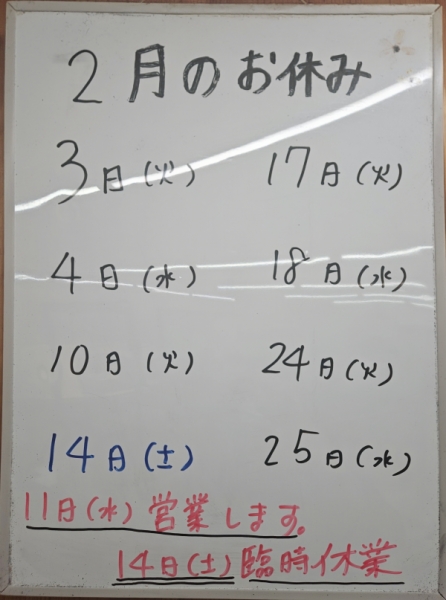 2月のお休み
3日(火) 17日(火)
4日(水) 18日(水)
10日(火) 24日(火)
14日(土) 25日(水)
11日(水)営業します。
14日(土)臨時休業